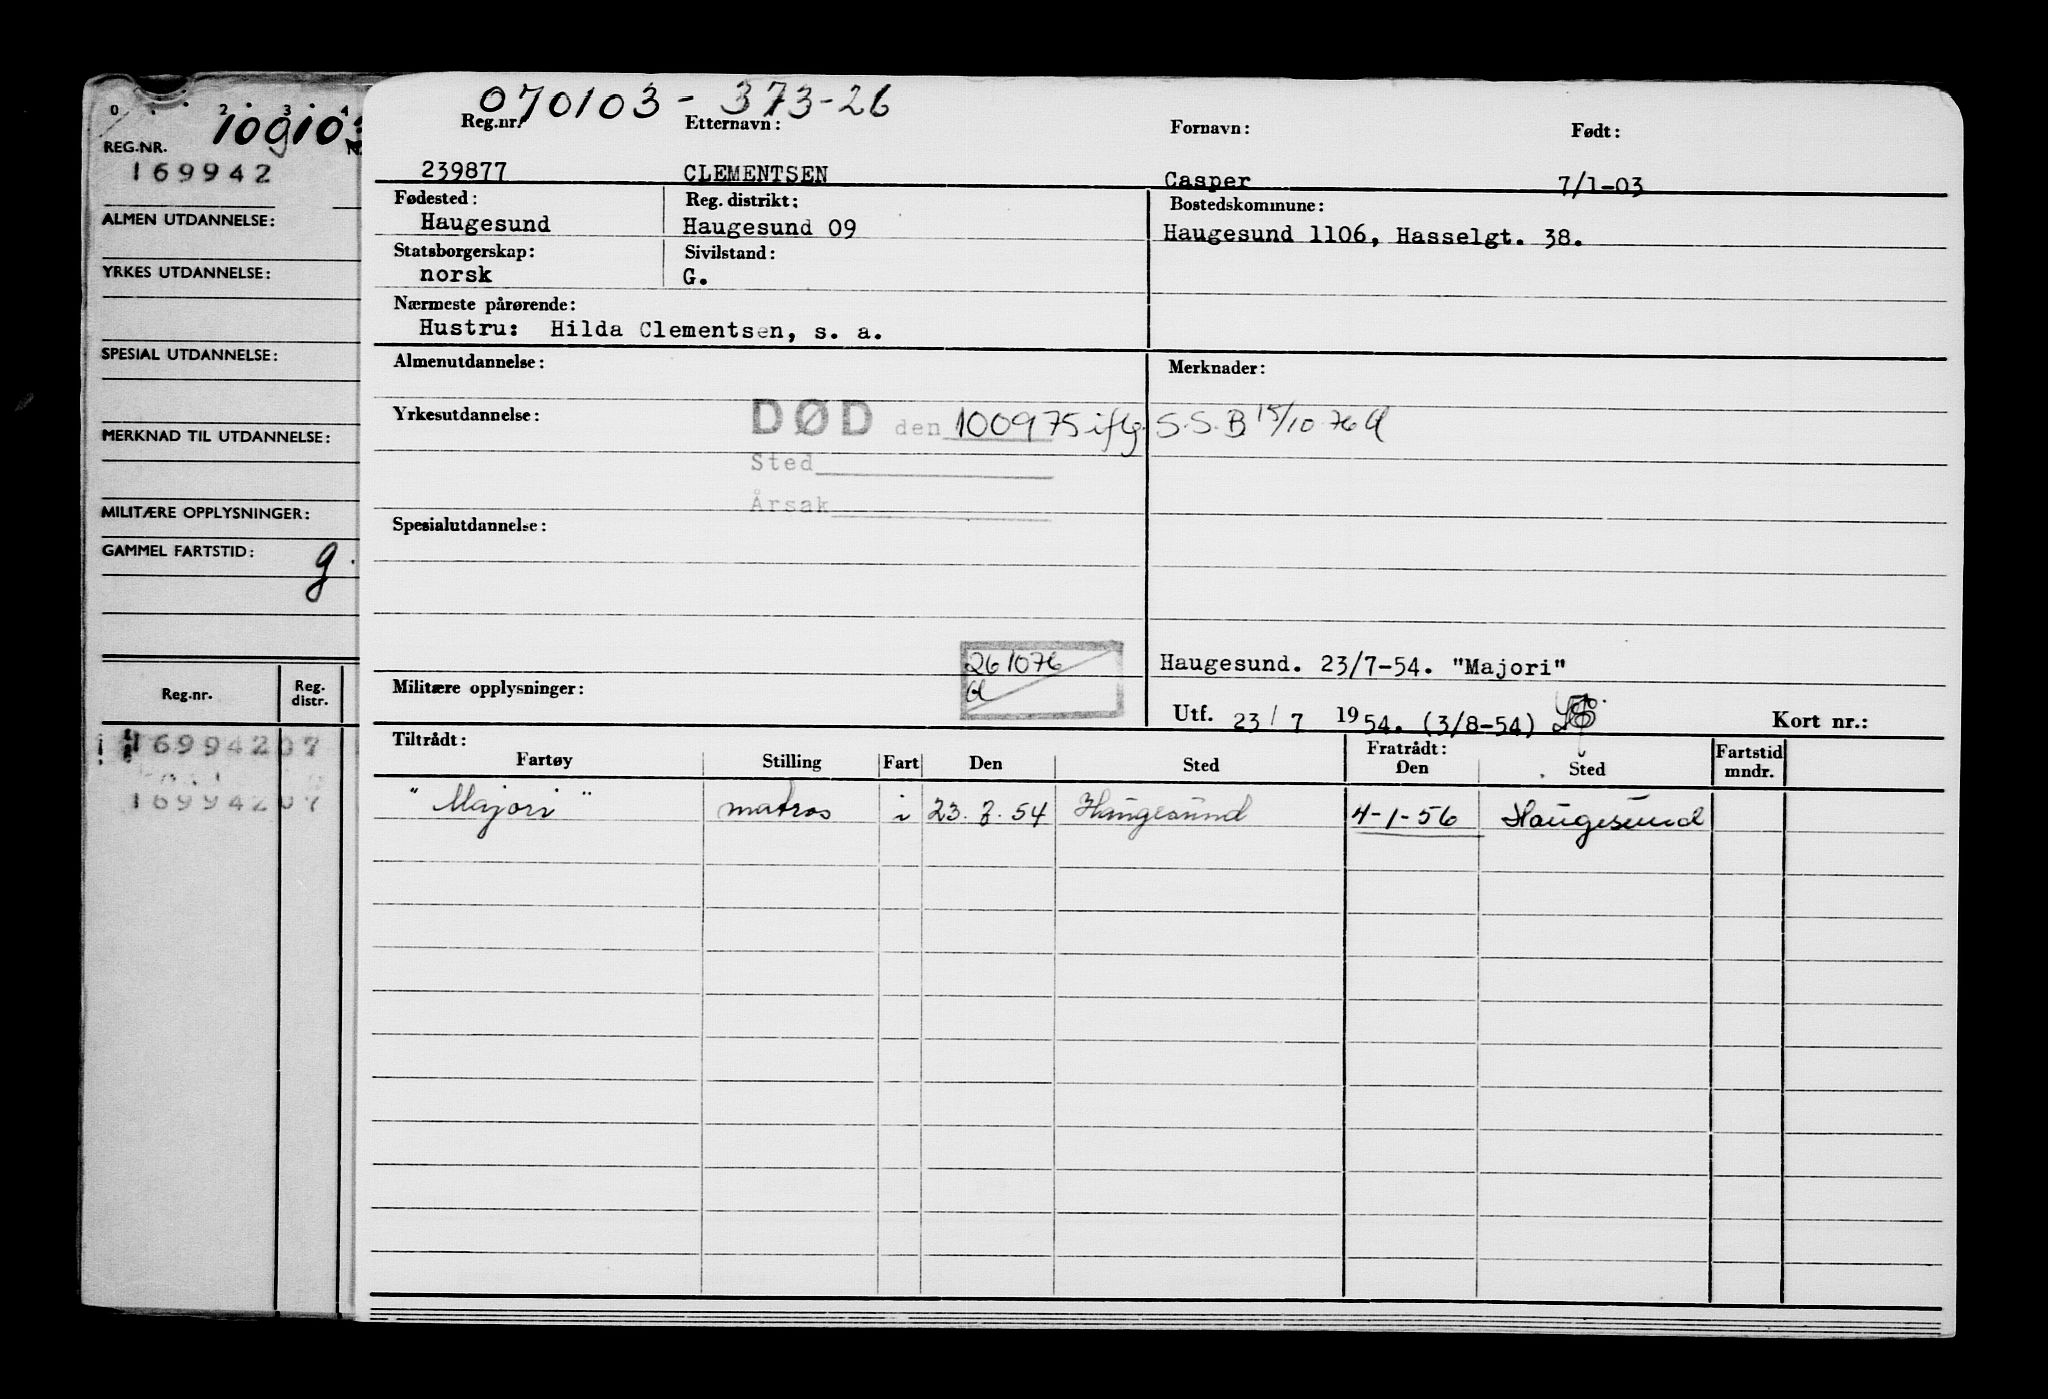 0 . 2 . 3 . 4
100103
REG.NR.
169942
ALMEN UTDANNELSE:
YRKES UTDANNELSE:
SPESIAL UTDANNELSE:
MERKNAD TIL UTDANNELSE:
MILITÆRE OPPLYSNINGER:
GAMMEL FARTSTID: g.
Reg.nr. Reg. distr.
16994207
16994207
070103 - 373-26
Reg.nr. Etternavn: Fornavn: Født:
239877 CLEMENTSEN Casper 7/1-03
Fødested: Reg. distrikt: Bostedskommune:
Haugesund Haugesund 09 Haugesund 1106, Hasselgt. 38.
Statsborgerskap: Sivilstand:
norsk G.
Nærmeste pårørende:
Hustru: Hilda Clementsen, s. a.
Almenutdannelse: Merknader:
Yrkesutdannelse: DØD den 100975 iflg. S.S.B 15/10 76
Sted
Årsak
Spesialutdannelse:
261076
Haugesund. 23/7-54. "Majori"
Militære opplysninger:
Utf. 23/7 1954. (3/8-54) Kort nr.:
Tiltrådt: Fratrådt: Fartstid
Fartøy Stilling Fart Den Sted Den Sted mndr.
"Majori" matros i 23.7.54 Haugesund 4-1-56 Haugesund